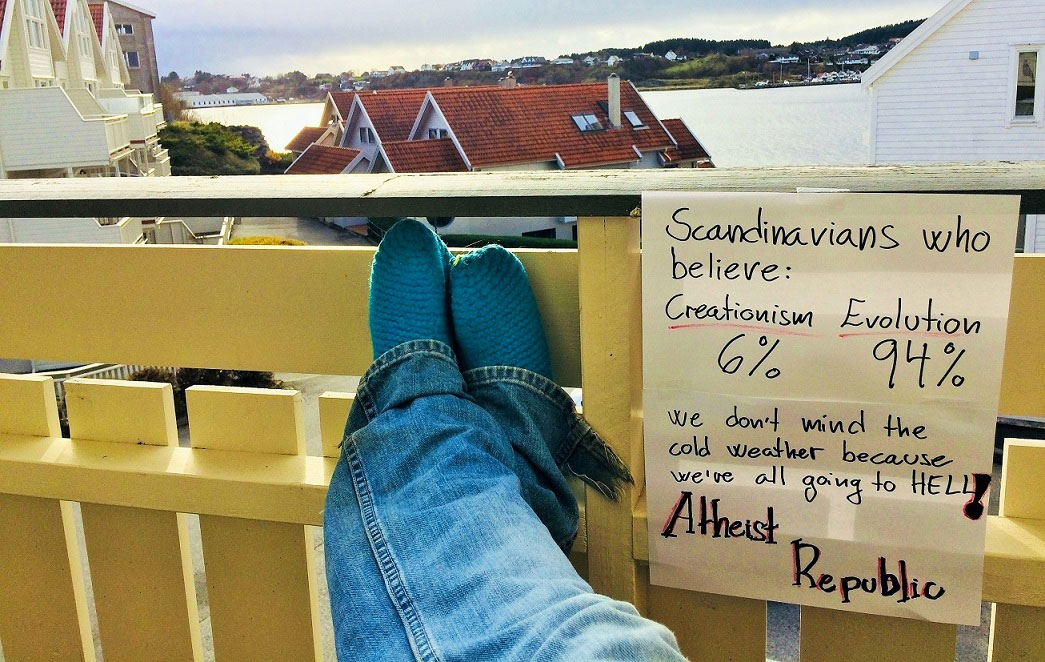 Scandinavians who
believe:
Creationism Evolution
6% 94%
we don't mind the
cold weather because
we're all going to HELL!
Atheist
Republic